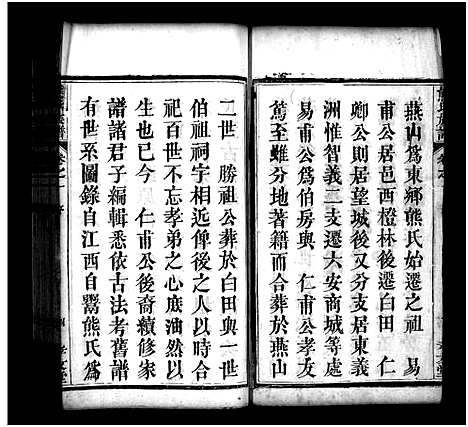 燕山為東鄉熊氏始遷之祖 易
甫公居邑西橙林後遷白田 仁
卿公則居望城後又分支居東義
洲惟智義二支遷六安商城等處
易甫公為伯房與 仁甫公孝友
篤至雖分地著籍而合葬於燕山
二世 勝祖公葬於白田與一世
伯祖祠宇相近俾後之人以時合
祀百世不忘孝弟之心庶油然以
生也已今 仁甫公後裔續修家
譜諸君子編輯悉依古法考舊譜
有世系圖錄自江西自鬻熊氏為